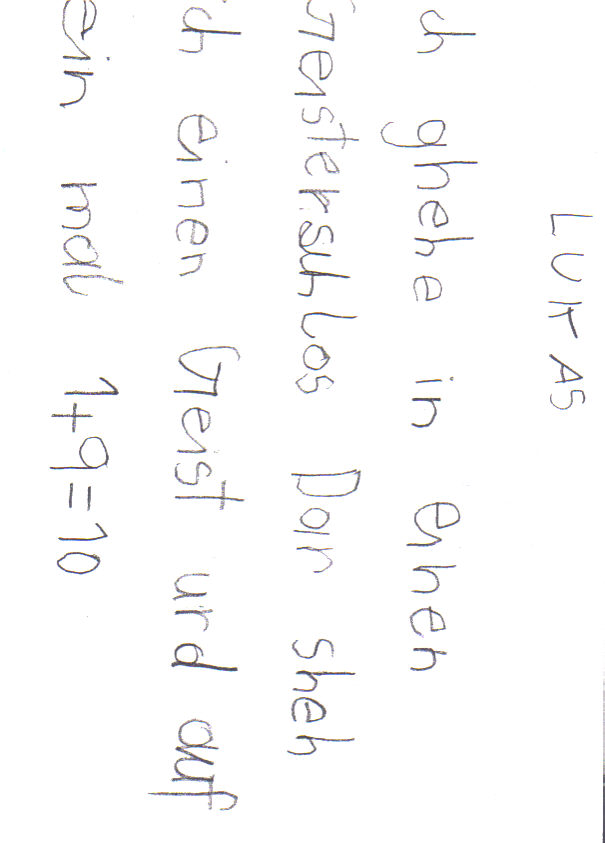 LUKAS
ch ghehe in einen
Geisterschlos Dan sheh
ich einen Geist und auf
ein mal 1+9=10